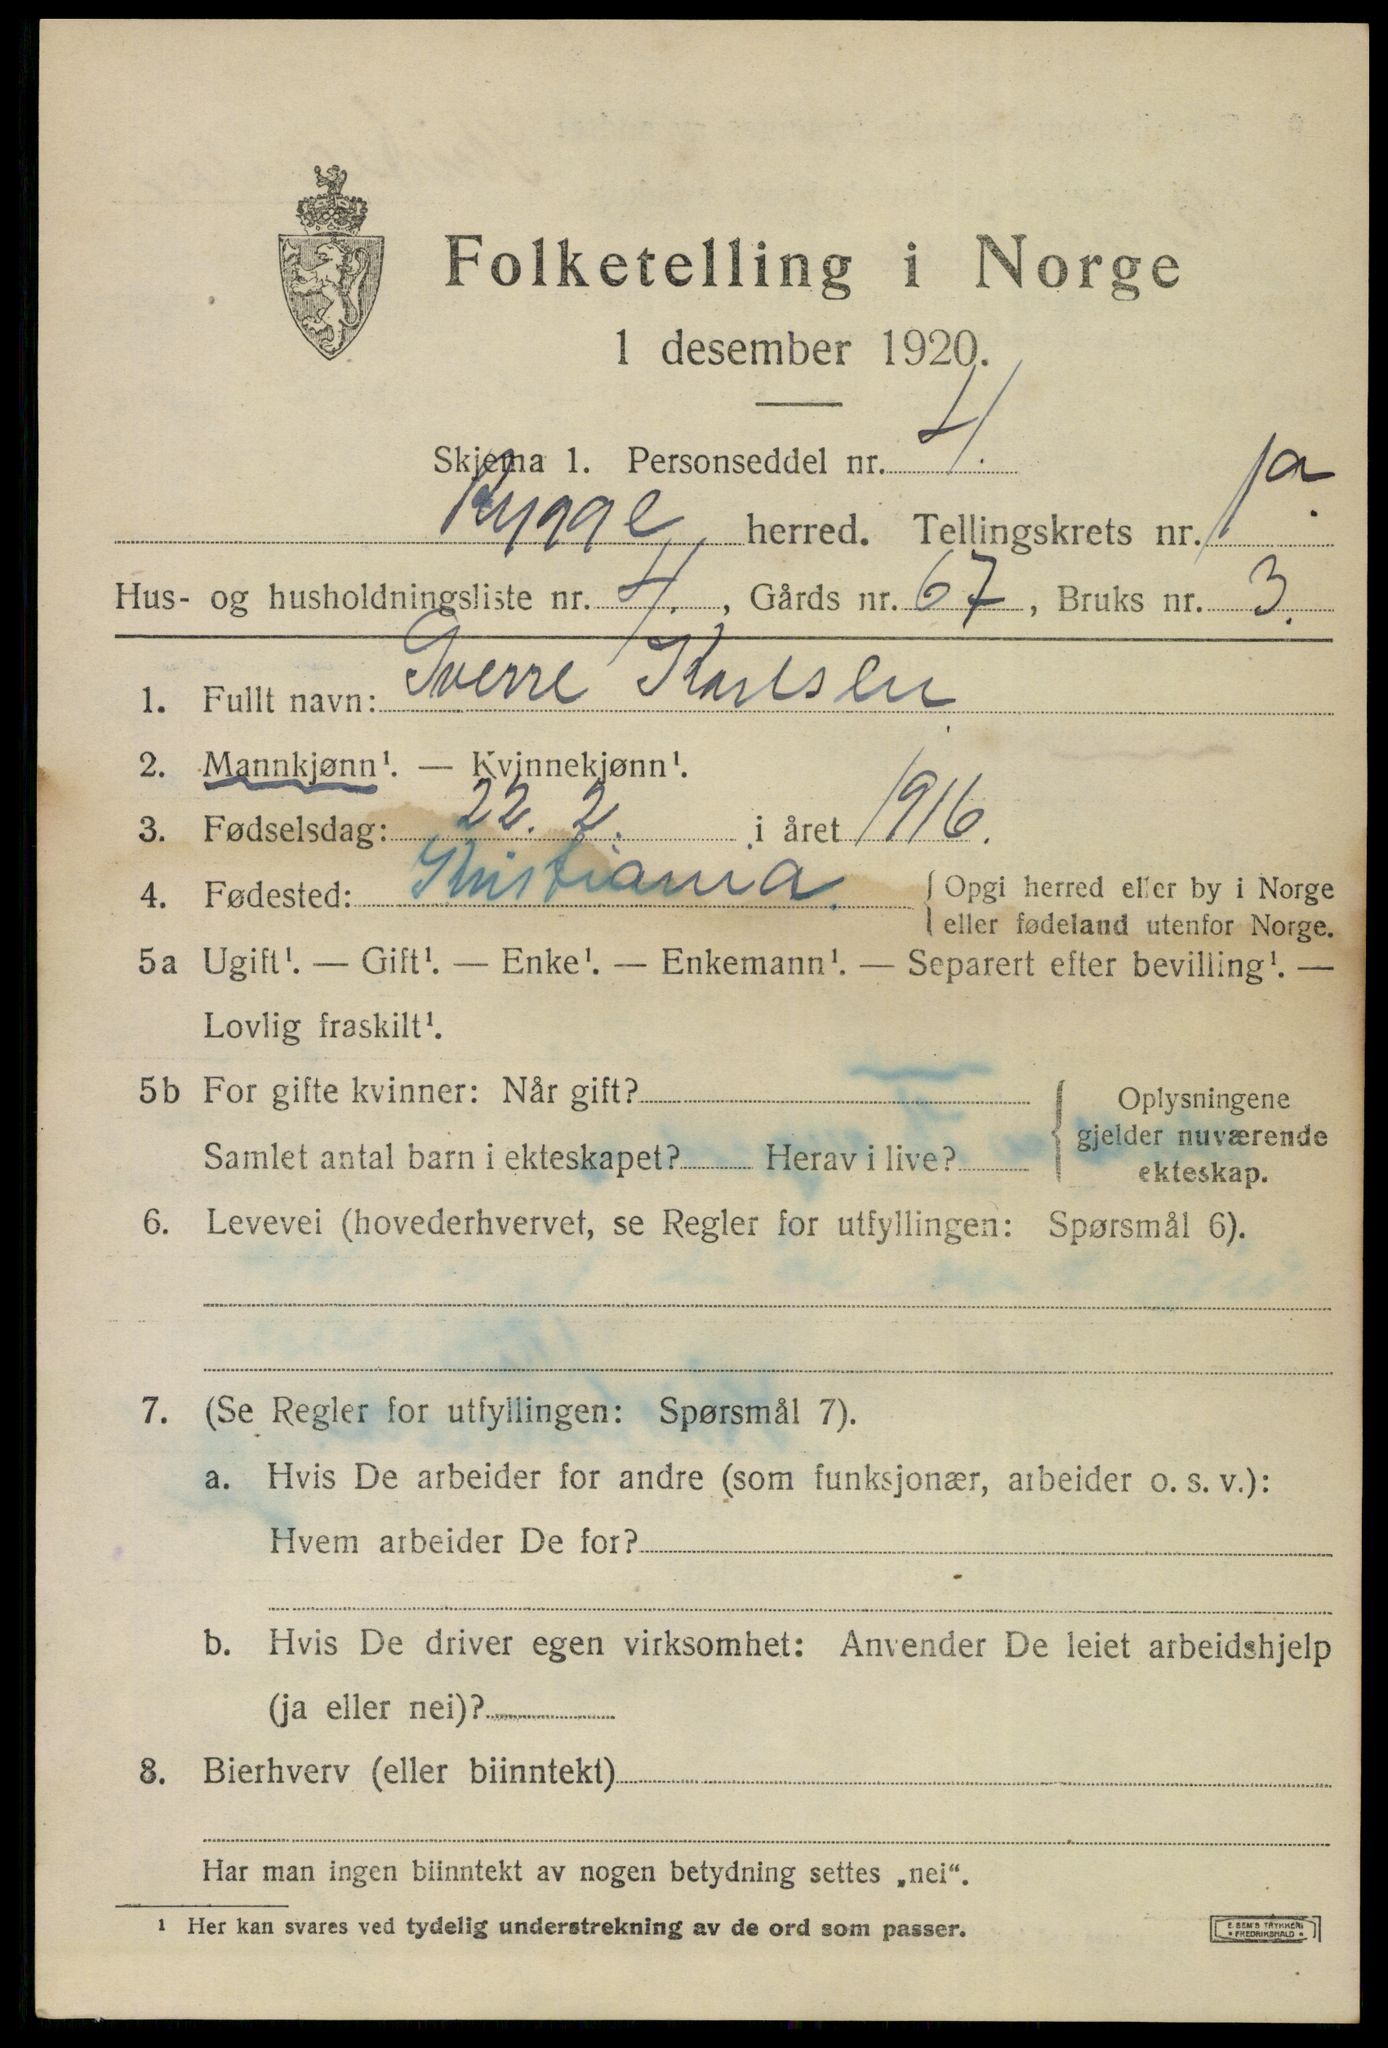 Folketelling i Norge
1 desember 1920.
Skjema 1. Personseddel nr. 4.
Rygge herred. Tellingskrets nr. 1a.
Hus- og husholdningsliste nr. 4., Gårds nr. 67, Bruks nr. 3.
1. Fullt navn: Sverre Karlsen
2. Mannkjønn¹. — Kvinnekjønn¹.
3. Fødselsdag: 22. 2. i året 1916.
4. Fødested: Kristiania. { Opgi herred eller by i Norge
eller fødeland utenfor Norge.
5a Ugift¹. — Gift¹. — Enke¹. — Enkemann¹. — Separert efter bevilling¹. —
Lovlig fraskilt¹.
5b For gifte kvinner: Når gift? { Oplysningene
Samlet antal barn i ekteskapet? Herav i live? gjelder nuværende
ekteskap.
6. Levevei (hovederhvervet, se Regler for utfyllingen: Spørsmål 6).
7. (Se Regler for utfyllingen: Spørsmål 7).
a. Hvis De arbeider for andre (som funksjonær, arbeider o. s. v.):
Hvem arbeider De for?
b. Hvis De driver egen virksomhet: Anvender De leiet arbeidshjelp
(ja eller nei)?
8. Bierhverv (eller biinntekt)
Har man ingen biinntekt av nogen betydning settes „nei“.
¹ Her kan svares ved tydelig understrekning av de ord som passer.
E. SEM'S TRYKKERI
* FREDRIKSHALD *